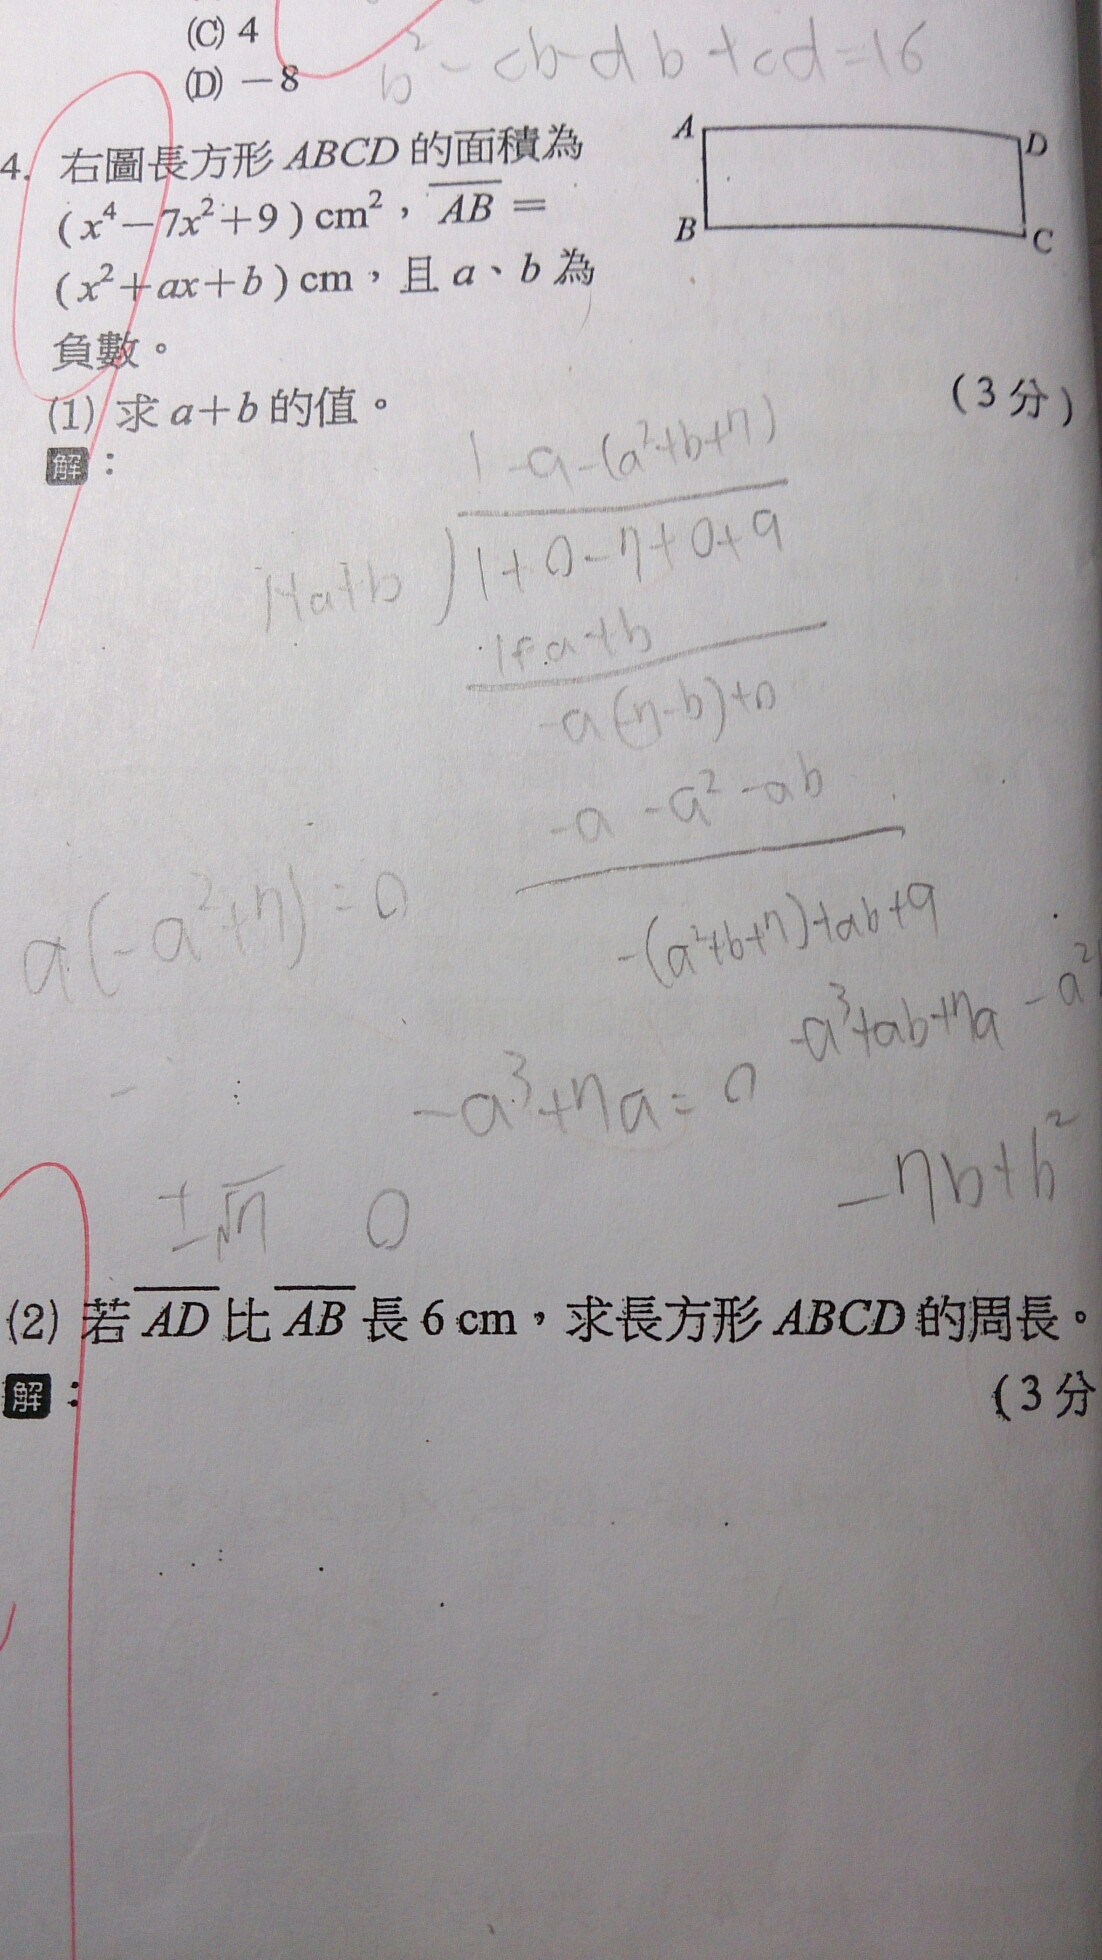 (C) 4
(D) －8
b² - cb - db + cd = 16
4. 右圖長方形 ABCD 的面積為
(x⁴－7x²＋9) cm²，AB＝
(x²＋ax＋b) cm，且 a、b 為
負數。
A
D
B
C
(1) 求 a＋b 的值。
(3 分)
解：
1 -a -(a²+b+7)
1+a+b
1+0-7+0+9
1+a+b
-a(-7-b)+0
-a -a² -ab
-(a²+b+7)+ab+9
a(-a²+7)=0
-a³+ab+7a -a²
-a³+7a=0
-7b+b²
±√7 0
(2) 若 AD 比 AB 長 6 cm，求長方形 ABCD 的周長。
(3 分
解：